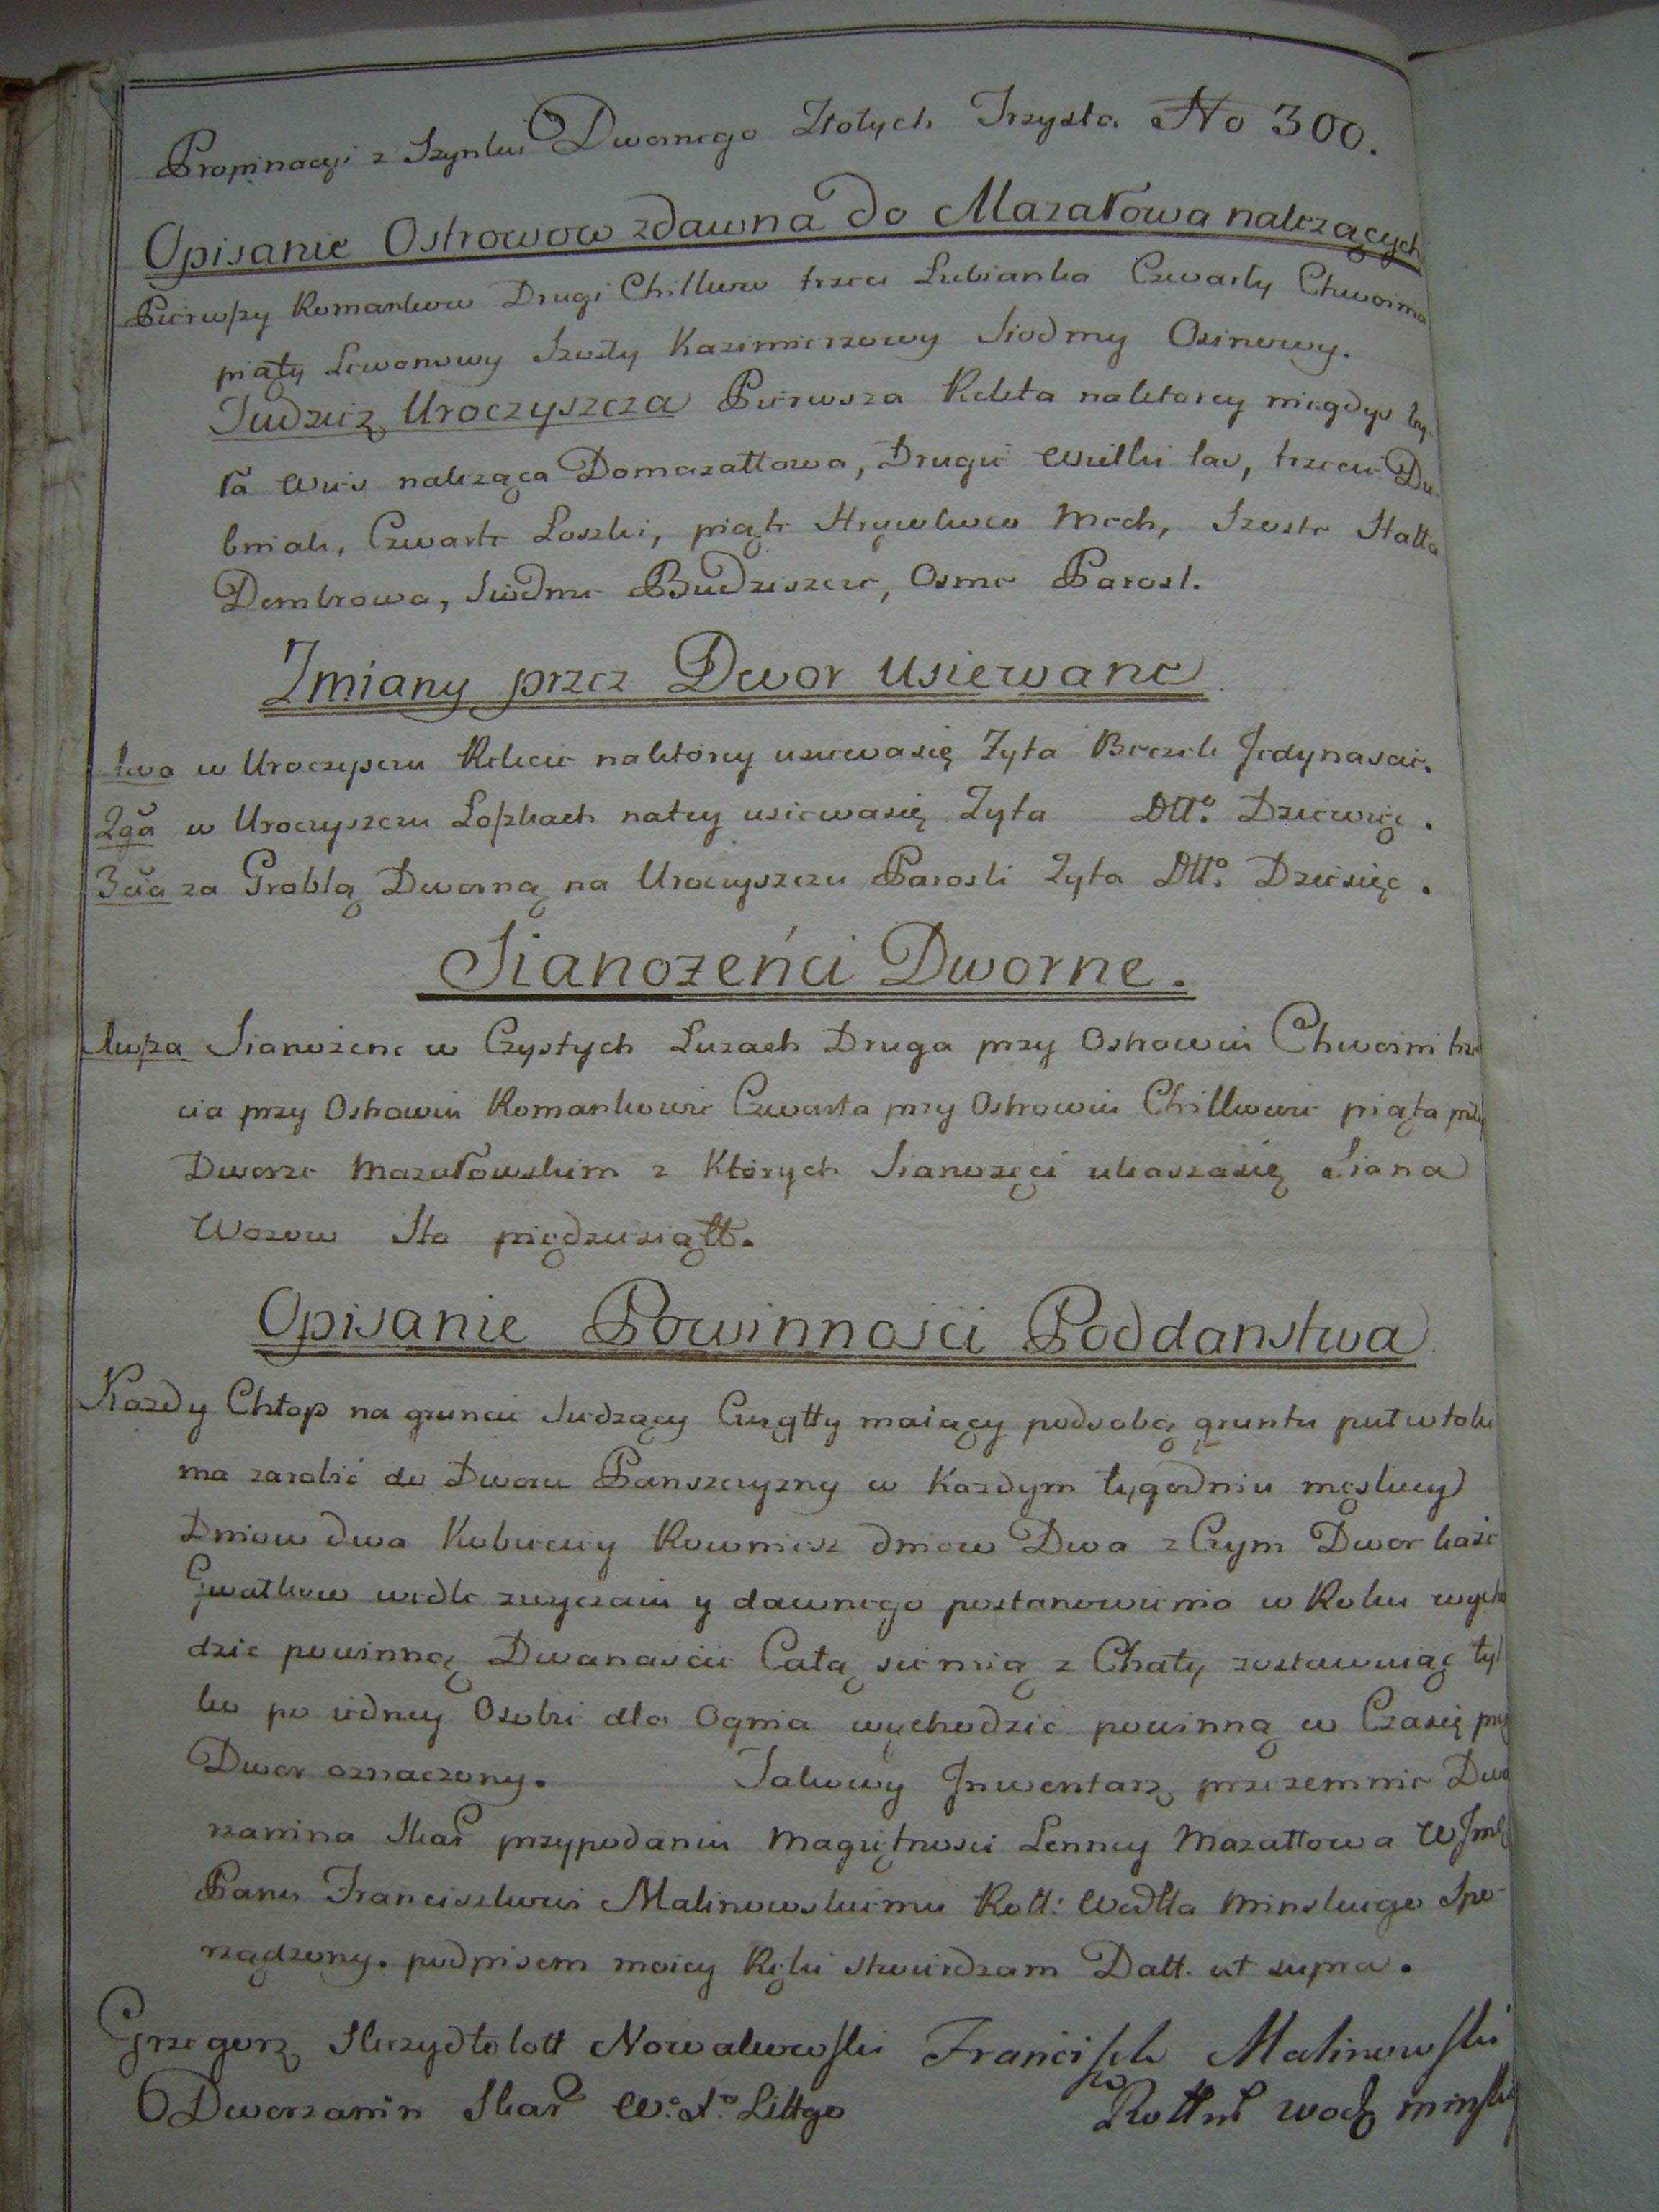 Propinacyi z Szynku Dwornego Złotych Trzysta No 300.
Opisanie Ostrowow zdawna do Mazałowa należących
Pierwszy Romankow Drugi Chilkow trzeci Lubianka Czwarty Chwoina
piąty Lewonowy Szosty Kazimierzowy Siodmy Osinowy.
Tudzież Uroczyszcza Pierwsza Releta naktorey niegdys by-
ła wies należąca Domazattowa, Drugie Wielki las, trzecie Du-
bniak, Czwarte Loszki, piąte Hrywkow Moch, Szoste Halta
Dembrowa, Siodme Budziszcze, Osme Parosl.
Zmiany przez Dwor Usiewane
1wa w Uroczysczu Relecie naktórey usiewasię Żyta Beczek Jedynascie.
2ga w Uroczyszczu Loszkach natey usiewasię Zyta Dtto. Dziewięc.
3cia za Groblą Dworną na Uroczyszczu Parosli Zyta Dtto. Dziesięc.
Sianożeńci Dworne.
1wsza Sianozenc w Czystych Luzach Druga przy Ostrowiu Chwoini trze
cia przy Ostrowiu Romankowie Czwarta przy Ostrowiu Chilkowie piąta przy
Dworze Mazałowskim z Których Sianozęci ukaszasię Siana
Wozow Sto pięddziesiątt.
Opisanie Powinnosci Poddanstwa
Kazdy Chłop na gruncie Siedzący Ciągtty maiący podsobą gruntu pułwłoki
ma zarobić do Dworu Panszczyzny w Kazdym tygodniu męskiey
Dniow dwa Kobiecey Rowniesz dniow Dwa z Czym Dwor każe
Gwałtkow wedle zwyczaiu y dawnego postanowienia w Roku wycho
dzic powinnę Dwanascie Całą siemią z Chaty zostawuiąc tyl
ko po iedney Osobie dla Ognia wychodzic powinną w Czasię przez
Dwor oznaczony. Takowy Jnwentarz przezemnie Dwo
rzanina Skar przypodaniu Magiętnosci Lenney Mazattowa WJmć
Panu Franciszkowi Malinowskiemu Rott: Wodtta Minskiego Spo-
rządzony. podpisem moiey Ręki stwierdzam Datt. ut supra.
Grzegorz Nowakowski Francisek Malinowski
Dworzanin Skar W. X. Littgo Rottm wodz minskie